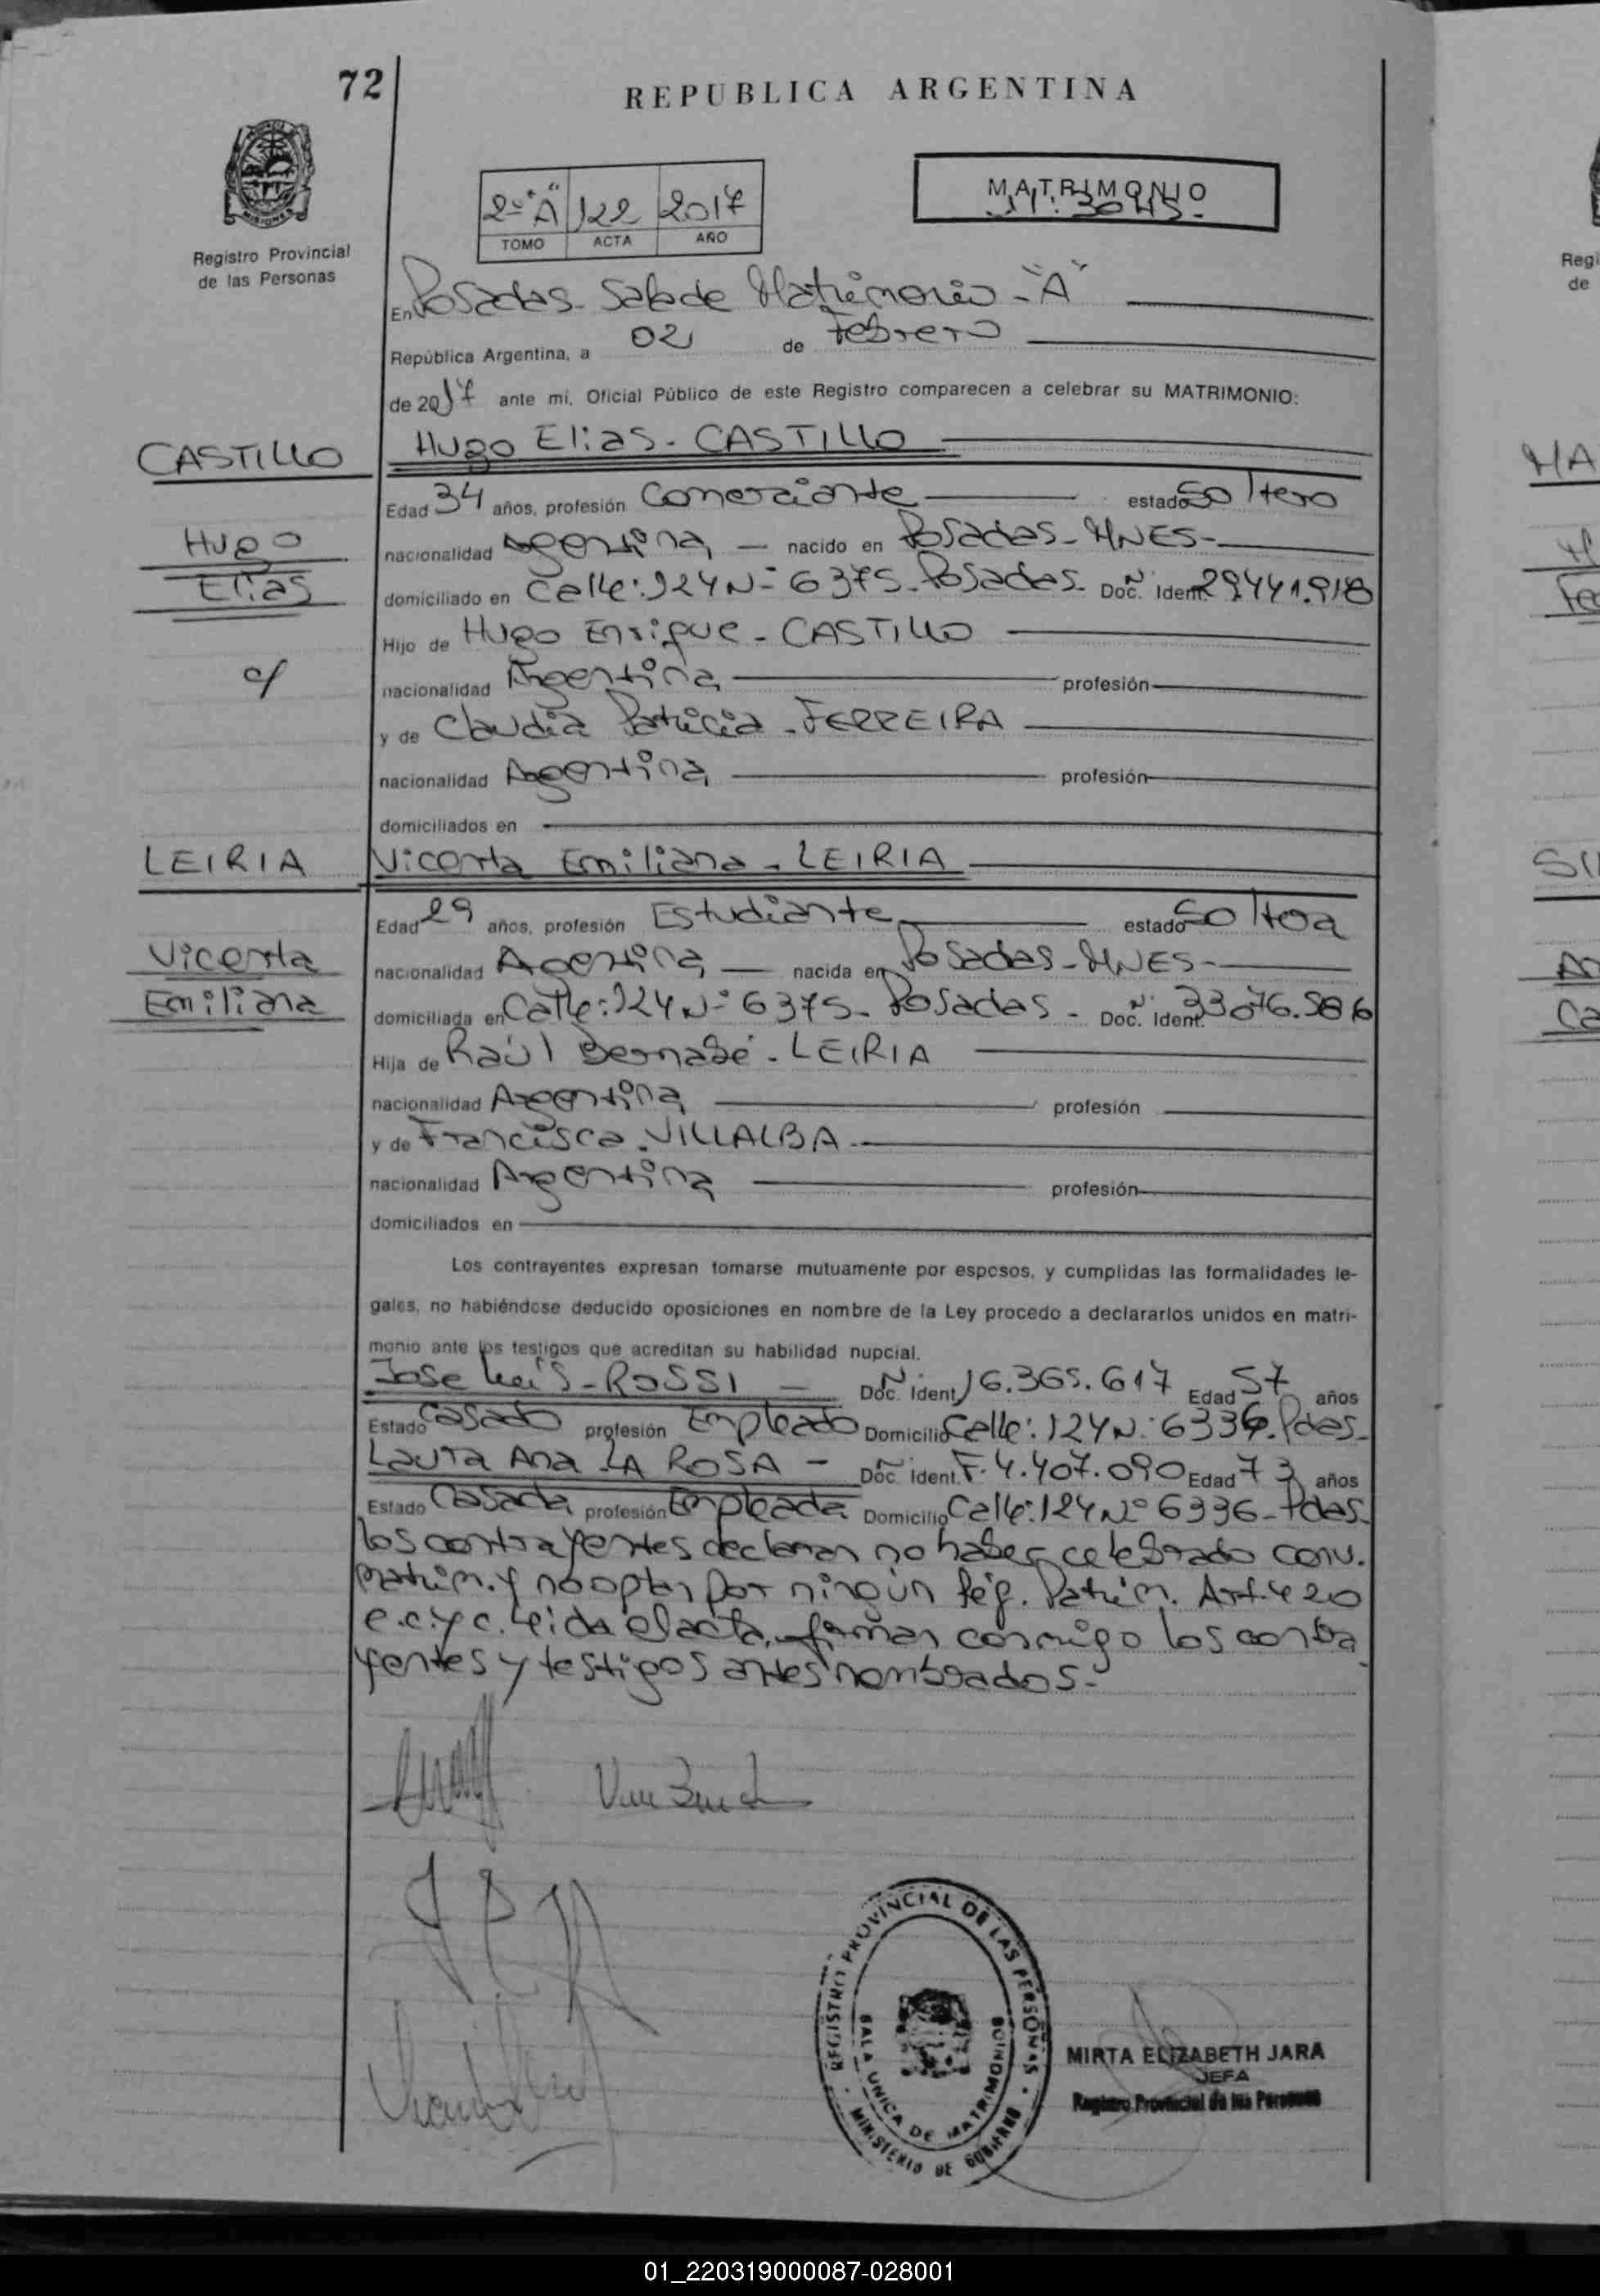 72
REPUBLICA ARGENTINA
Registro Provincial
de las Personas
2º "A" 122 2017
TOMO ACTA AÑO
MATRIMONIO
En Posadas - Sala de Matrimonio - "A"
República Argentina, a 02 de Febrero
de 2017 ante mi, Oficial Público de este Registro comparecen a celebrar su MATRIMONIO:
CASTILLO
Hugo Elias - CASTILLO
Edad 34 años, profesión Comerciante estado Soltero
Hugo
Elias
nacionalidad Argentina nacido en Posadas - MNES-
domiciliado en Calle: 124 Nº 6375 - Posadas - Doc. Ident. Nº 29.441.918
Hijo de Hugo Enrique - CASTILLO
c/
nacionalidad Argentina profesión
y de Claudia Patricia - FERREIRA
nacionalidad Argentina profesión
domiciliados en
LEIRIA
Vicenta Emiliana - LEIRIA
Edad 29 años, profesión Estudiante estado Soltera
Vicenta
Emiliana
nacionalidad Argentina nacida en Posadas - MNES-
domiciliada en Calle: 124 Nº 6375 - Posadas - Doc. Ident. Nº 33.076.586
Hija de Raúl Bernabé - LEIRIA
nacionalidad Argentina profesión
y de Francisca - VILLALBA
nacionalidad Argentina profesión
domiciliados en
Los contrayentes expresan tomarse mutuamente por esposos, y cumplidas las formalidades le-
gales, no habiéndose deducido oposiciones en nombre de la Ley procedo a declararlos unidos en matri-
monio ante los testigos que acreditan su habilidad nupcial.
Jose Luis - ROSSI - Doc. Ident. Nº 16.365.617 Edad 57 años
Estado Casado profesión Empleado Domicilio Calle: 124 Nº 6336. Pdas.
Laura Ana LA ROSA - Doc. Ident. Nº F. 4.407.090 Edad 73 años
Estado Casada profesión Empleada Domicilio Calle: 124 Nº 6336 - Pdas.
los contrayentes declaran no haber celebrado conv.
matrim. y no optan por ningún rég. Patrim. Art. 420
c.c.y c. Leida el acta, firman conmigo los contra
yentes y testigos antes nombrados.-
REGISTRO PROVINCIAL DE LAS PERSONAS
SALA UNICA DE MATRIMONIOS
MINISTERIO DE GOBIERNO
MIRTA ELIZABETH JARA
JEFA
Registro Provincial de las Personas
01_220319000087-028001